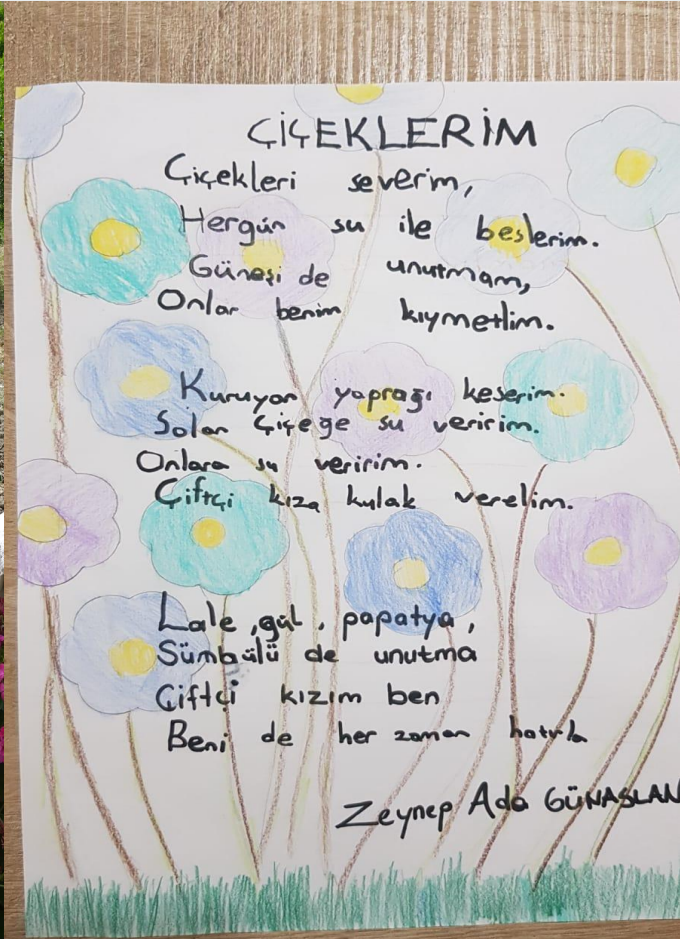 ÇİÇEKLERİM
Çiçekleri severim,
Hergün su ile beslerim.
Güneşi de unutmam,
Onlar benim kıymetlim.
Kuruyan yaprağı keserim.
Solan çiçeğe su veririm.
Onlara su veririm.
Çiftçi kıza kulak verelim.
Lale, gül, papatya,
Sümbülü de unutma
Çiftçi kızım ben
Beni de her zaman hatırla
Zeynep Ada GÜNASLAN